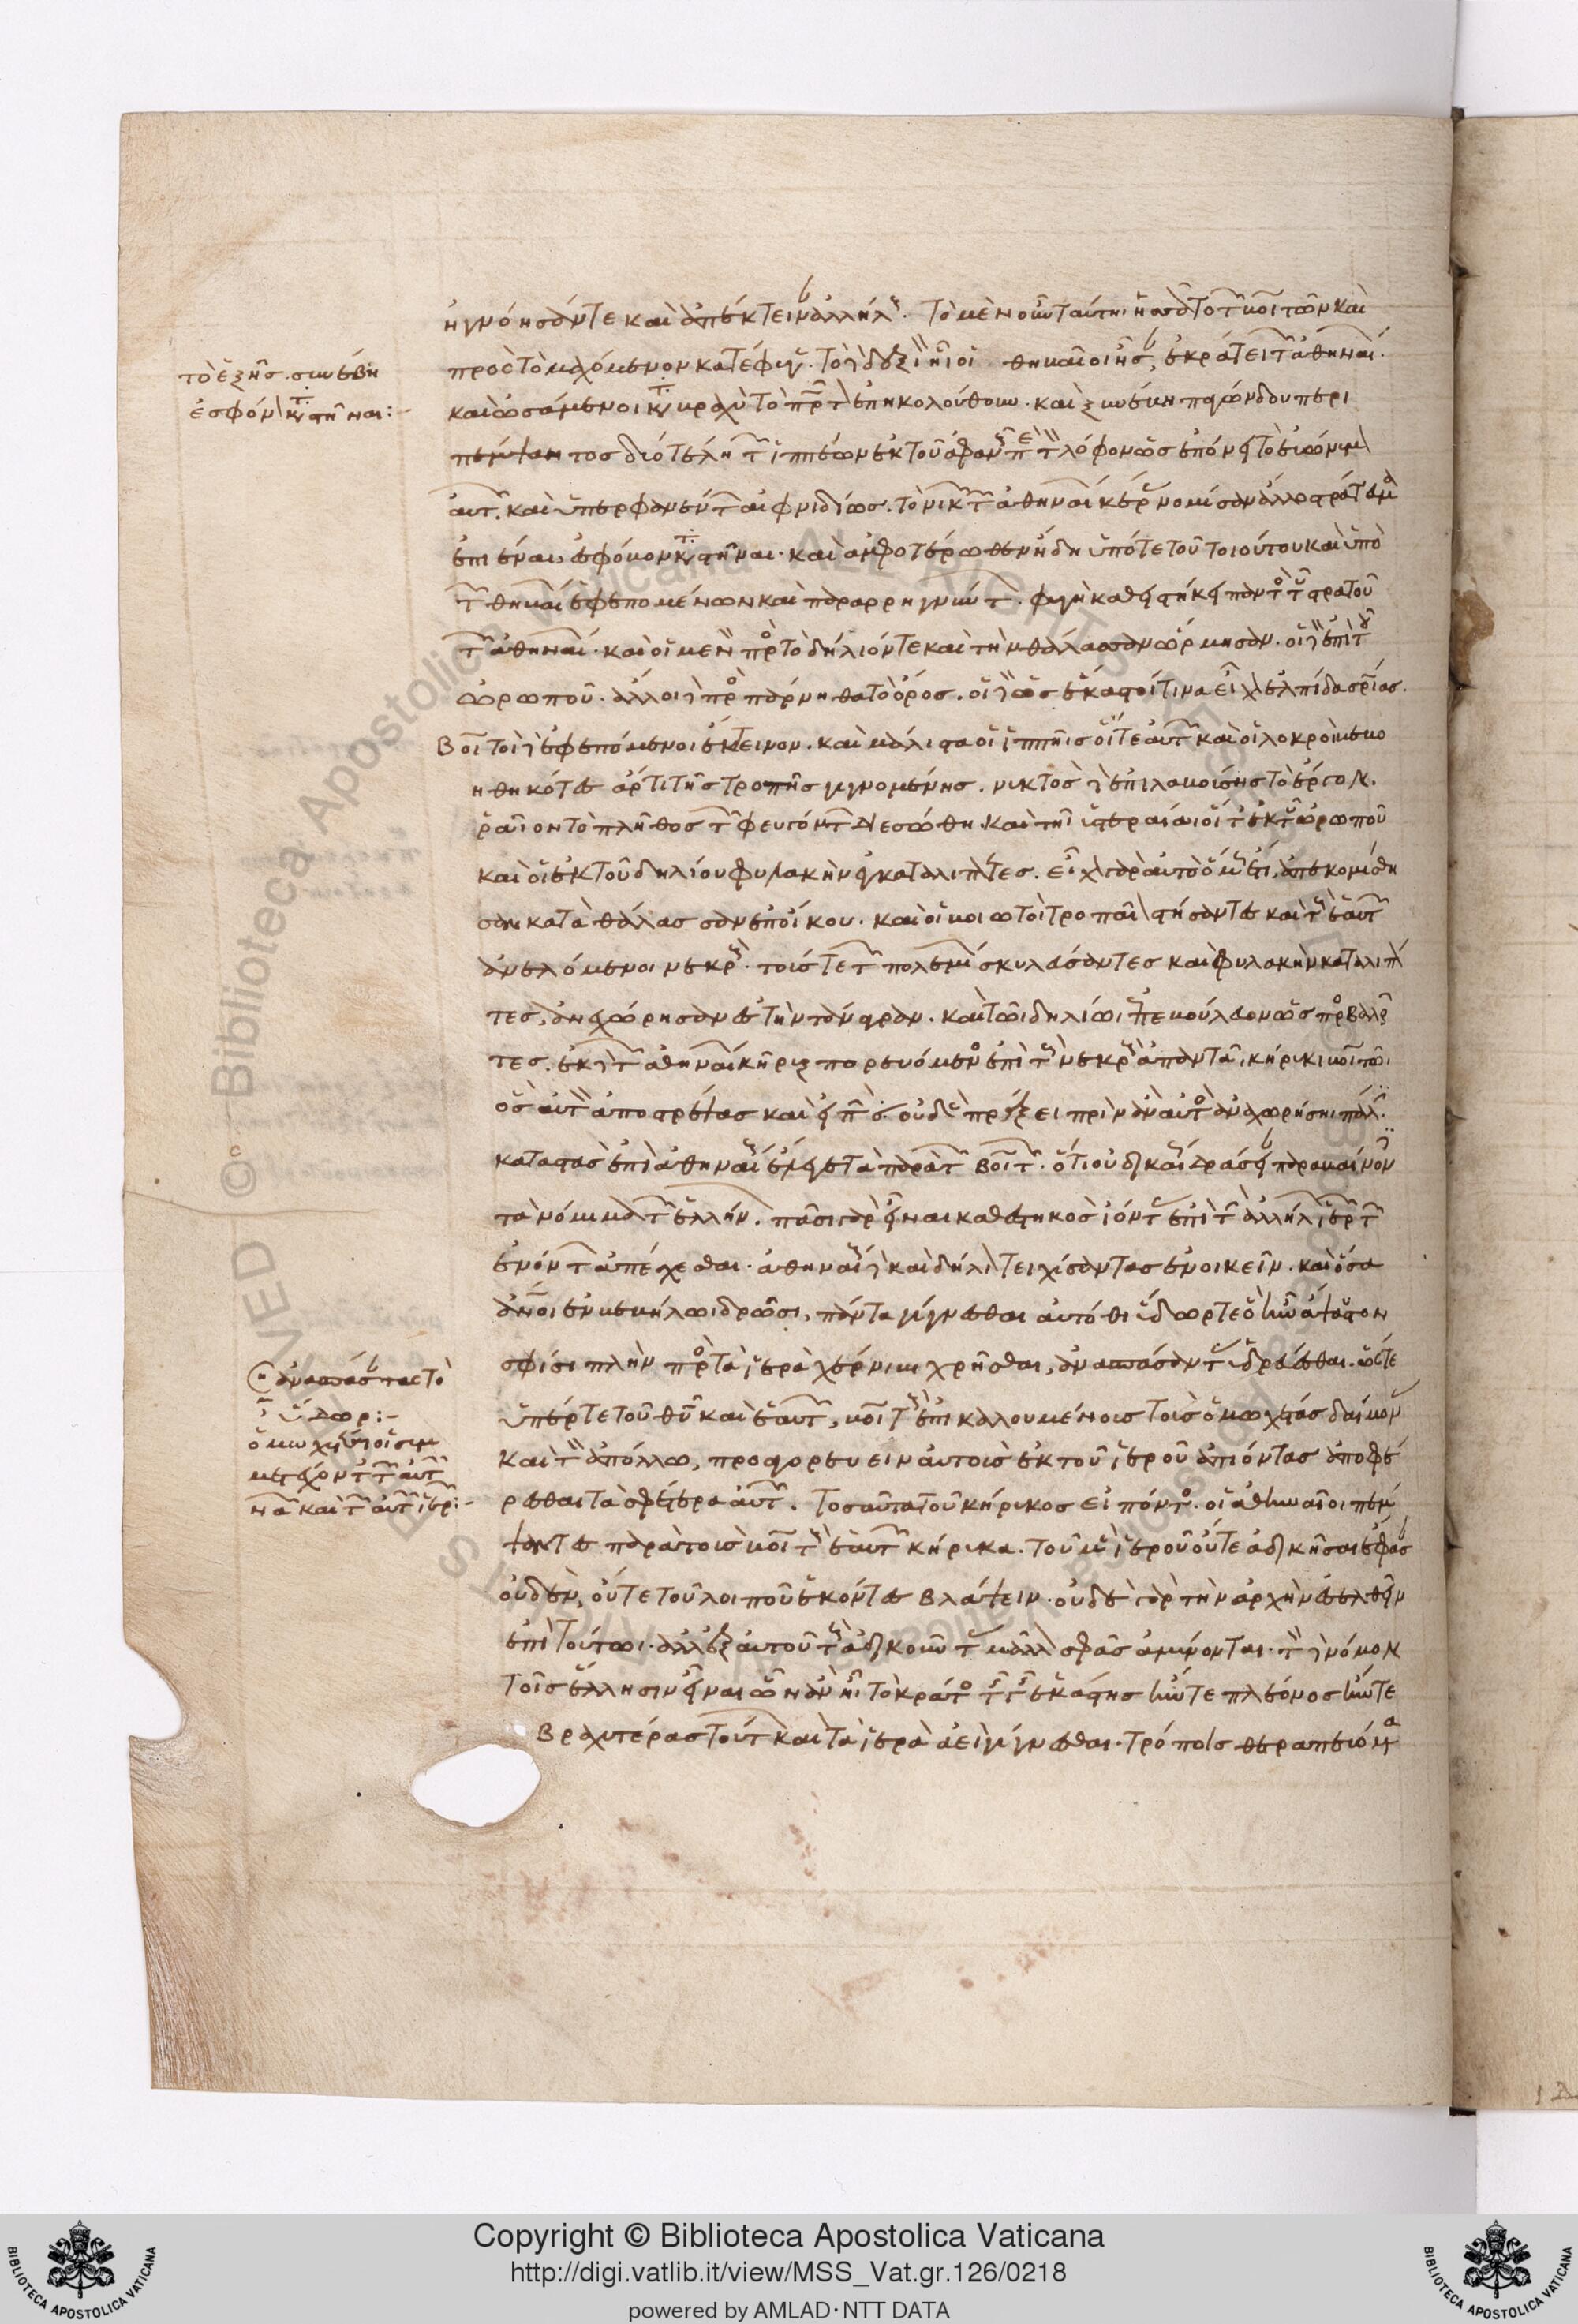 ἠγνόησάν τε καὶ ἀπέκτειναν ἀλλήλους. τὸ μὲν οὖν ταύτηι ἡσσᾶτο τῶν βοιωτῶν καὶ
πρὸς τὸ μαχόμενον κατέφυγε. τὸ δὲ δεξιὸν ἧι οἱ θηβαῖοι ἦσαν, ἐκράτει τῶν ἀθηναίων.
καὶ ὠσάμενοι κατὰ βραχὺ τὸ πρῶτον ἐπηκολούθουν. καὶ ξυνέβη παγώνδου περι
πέμψαντος δύο τέλη τῶν ἱππέων ἐκ τοῦ ἀφανοῦς περὶ τὸν λόφον ὡς ἐπόνει τὸ εὐώνυμον
αὐτῶν. καὶ ὑπερφανέντων αἰφνιδίως. τὸ νικῶν τῶν ἀθηναίων κέρας νομίσαν ἄλλο στράτευμα
ἐπιέναι, ἐς φόβον καταστῆναι. καὶ ἀμφοτέρωθεν ἤδη ὑπό τε τοῦ τοιούτου καὶ ὑπὸ
τῶν θηβαίων ἐφεπομένων καὶ παραρρηγνύντων. φυγὴ καθειστήκει παντὸς τοῦ στρατοῦ
τῶν ἀθηναίων. καὶ οἱ μὲν πρὸς τὸ δήλιόν τε καὶ τὴν θάλασσαν ὥρμησαν. οἱ δὲ ἐπὶ τοῦ
ὠρωποῦ. ἄλλοι δὲ πρὸς πάρνηθα τὸ ὄρος. οἱ δὲ ὡς ἕκαστοί τινα εἶχον ἐλπίδα σωτηρίας.
βοιωτοὶ δὲ ἐφεπόμενοι ἔκτεινον. καὶ μάλιστα οἱ ἱππῆς οἵ τε αὐτῶν καὶ οἱ λοκροὶ βεβο
ηθηκότες ἄρτι τῆς τροπῆς γιγνομένης. νυκτὸς δὲ ἐπιλαβούσης τὸ ἔργον.
ῥᾷον τὸ πλῆθος τῶν φευγόντων διεσώθη. καὶ τῆι ὑστεραίαι οἵ τε ἐκ τοῦ ὠρωποῦ
καὶ οἱ ἐκ τοῦ δηλίου φυλακὴν ἐγκαταλιπόντες. εἶχον γὰρ αὐτὸ ὅμως ἔτι, ἀπεκομίσθη
σαν κατὰ θάλασσαν ἐπ' οἴκου. καὶ οἱ βοιωτοὶ τροπαῖον στήσαντες καὶ τοὺς ἑαυτῶν
ἀνελόμενοι νεκρούς. τούς τε τῶν πολεμίων σκυλεύσαντες καὶ φυλακὴν καταλιπόν
τες, ἀνεχώρησαν ἐς τὴν τάναγραν. καὶ τῶι δηλίωι ἐπεβούλευον ὡς προσβαλοῦν
τες. ἐκ δὲ τῶν ἀθηναίων κῆρυξ πορευόμενος ἐπὶ τοὺς νεκροὺς ἀπαντᾶι κήρυκι βοιωτῶι
ὃς αὐτὸν ἀποστρέψας καὶ εἰπὼν ὅτι οὐδὲν πράξει πρὶν ἂν αὐτὸς ἀναχωρήσηι πάλιν.
καταστὰς ἐπὶ ἀθηναίους ἔλεγε τὰ παρὰ τῶν βοιωτῶν. ὅτι οὐ δικαίως δράσειαν παραβαίνοντες
τὰ νόμιμα τῶν ἑλλήνων. πᾶσι γὰρ εἶναι καθεστηκὸς ἰόντας ἐπὶ τὴν ἀλλήλων ἱερῶν τῶν
ἐνόντων ἀπέχεσθαι. ἀθηναίους δὲ καὶ δήλιον τειχίσαντας ἐνοικεῖν. καὶ ὅσα
ἄνθρωποι ἐν βεβήλωι δρῶσι, πάντα γίγνεσθαι αὐτόθι ὕδωρ τε ὃ ἦν ἄψαυστον
σφίσι πλὴν πρὸς τὰ ἱερὰ χέρνιβι χρῆσθαι, ἀνασπάσαντας ὑδρεύεσθαι. ὥστε
ὑπέρ τε τοῦ θεοῦ καὶ ἑαυτῶν, βοιωτοὺς ἐπικαλουμένους τοὺς ὁμωχέτας δαίμονας
καὶ τὸν ἀπόλλω, προαγορεύειν αὐτοὺς ἐκ τοῦ ἱεροῦ ἀπιόντας ἀποφέ
ρεσθαι τὰ σφέτερα αὐτῶν. τοσαῦτα τοῦ κήρυκος εἰπόντος. οἱ ἀθηναῖοι πέμ
ψαντες παρὰ τοὺς βοιωτοὺς ἑαυτῶν κήρυκα. τοῦ μὲν ἱεροῦ οὔτε ἀδικῆσαι ἔφασαν
οὐδέν, οὔτε τοῦ λοιποῦ ἑκόντες βλάψειν. οὐδὲ γὰρ τὴν ἀρχὴν ἐσελθεῖν
ἐπὶ τούτωι. ἀλλ' ἐξ αὐτοῦ τοὺς ἀδικοῦντας μᾶλλον σφᾶς ἀμύνονται. τὸν δὲ νόμον
τοῖς ἕλλησιν εἶναι ὧν ἂν ἦι τὸ κράτος τῆς γῆς ἑκάστης ἤν τε πλέονος ἤν τε
βραχυτέρας τούτων καὶ τὰ ἱερὰ ἀεὶ γίγνεσθαι. τρόποις θεραπευόμενα
τὸ ἑξῆς. συνέβη
ἐς φόβον καταστῆναι:-
ἀνασπάσαντας τὸ
ὕδωρ:-
Copyright © Biblioteca Apostolica Vaticana
http://digi.vatlib.it/view/MSS_Vat.gr.126/0218
powered by AMLAD·NTT DATA